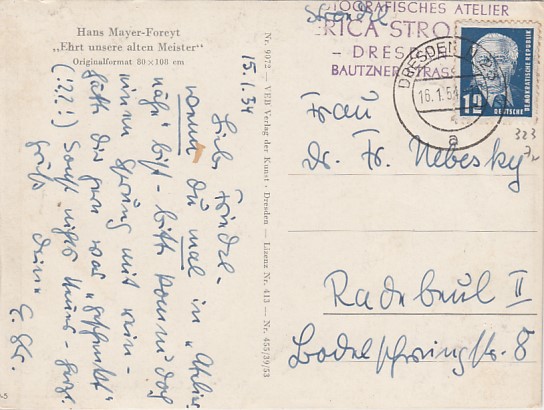 Hans Mayer-Foreyt
„Ehrt unsere alten Meister"
Originalformat 80×100 cm
15.1.54
Liebe Friedel -
wenn du mal in "Atelier
nähe" bist - bitte komm' doch
einen Sprung mit rein -
hätte dir gern was
(:??!) Sonst nichts Neues -
Grüße
Dein
Nr. 9072 - VEB Verlag der Kunst - Dresden - Lizenz Nr. 413 - Nr. 455/39/53
FOTOGRAFISCHES ATELIER
ERICA STRO
- DRES
BAUTZNER STRASS
DRESDEN
16.1.54
a
12
DEUTSCHE
DEMOKRATISCHE REPUBLIK
323
Frau
Dr. Fr. Nebesky
Radebeul II
Bodelschwinghstr. 8